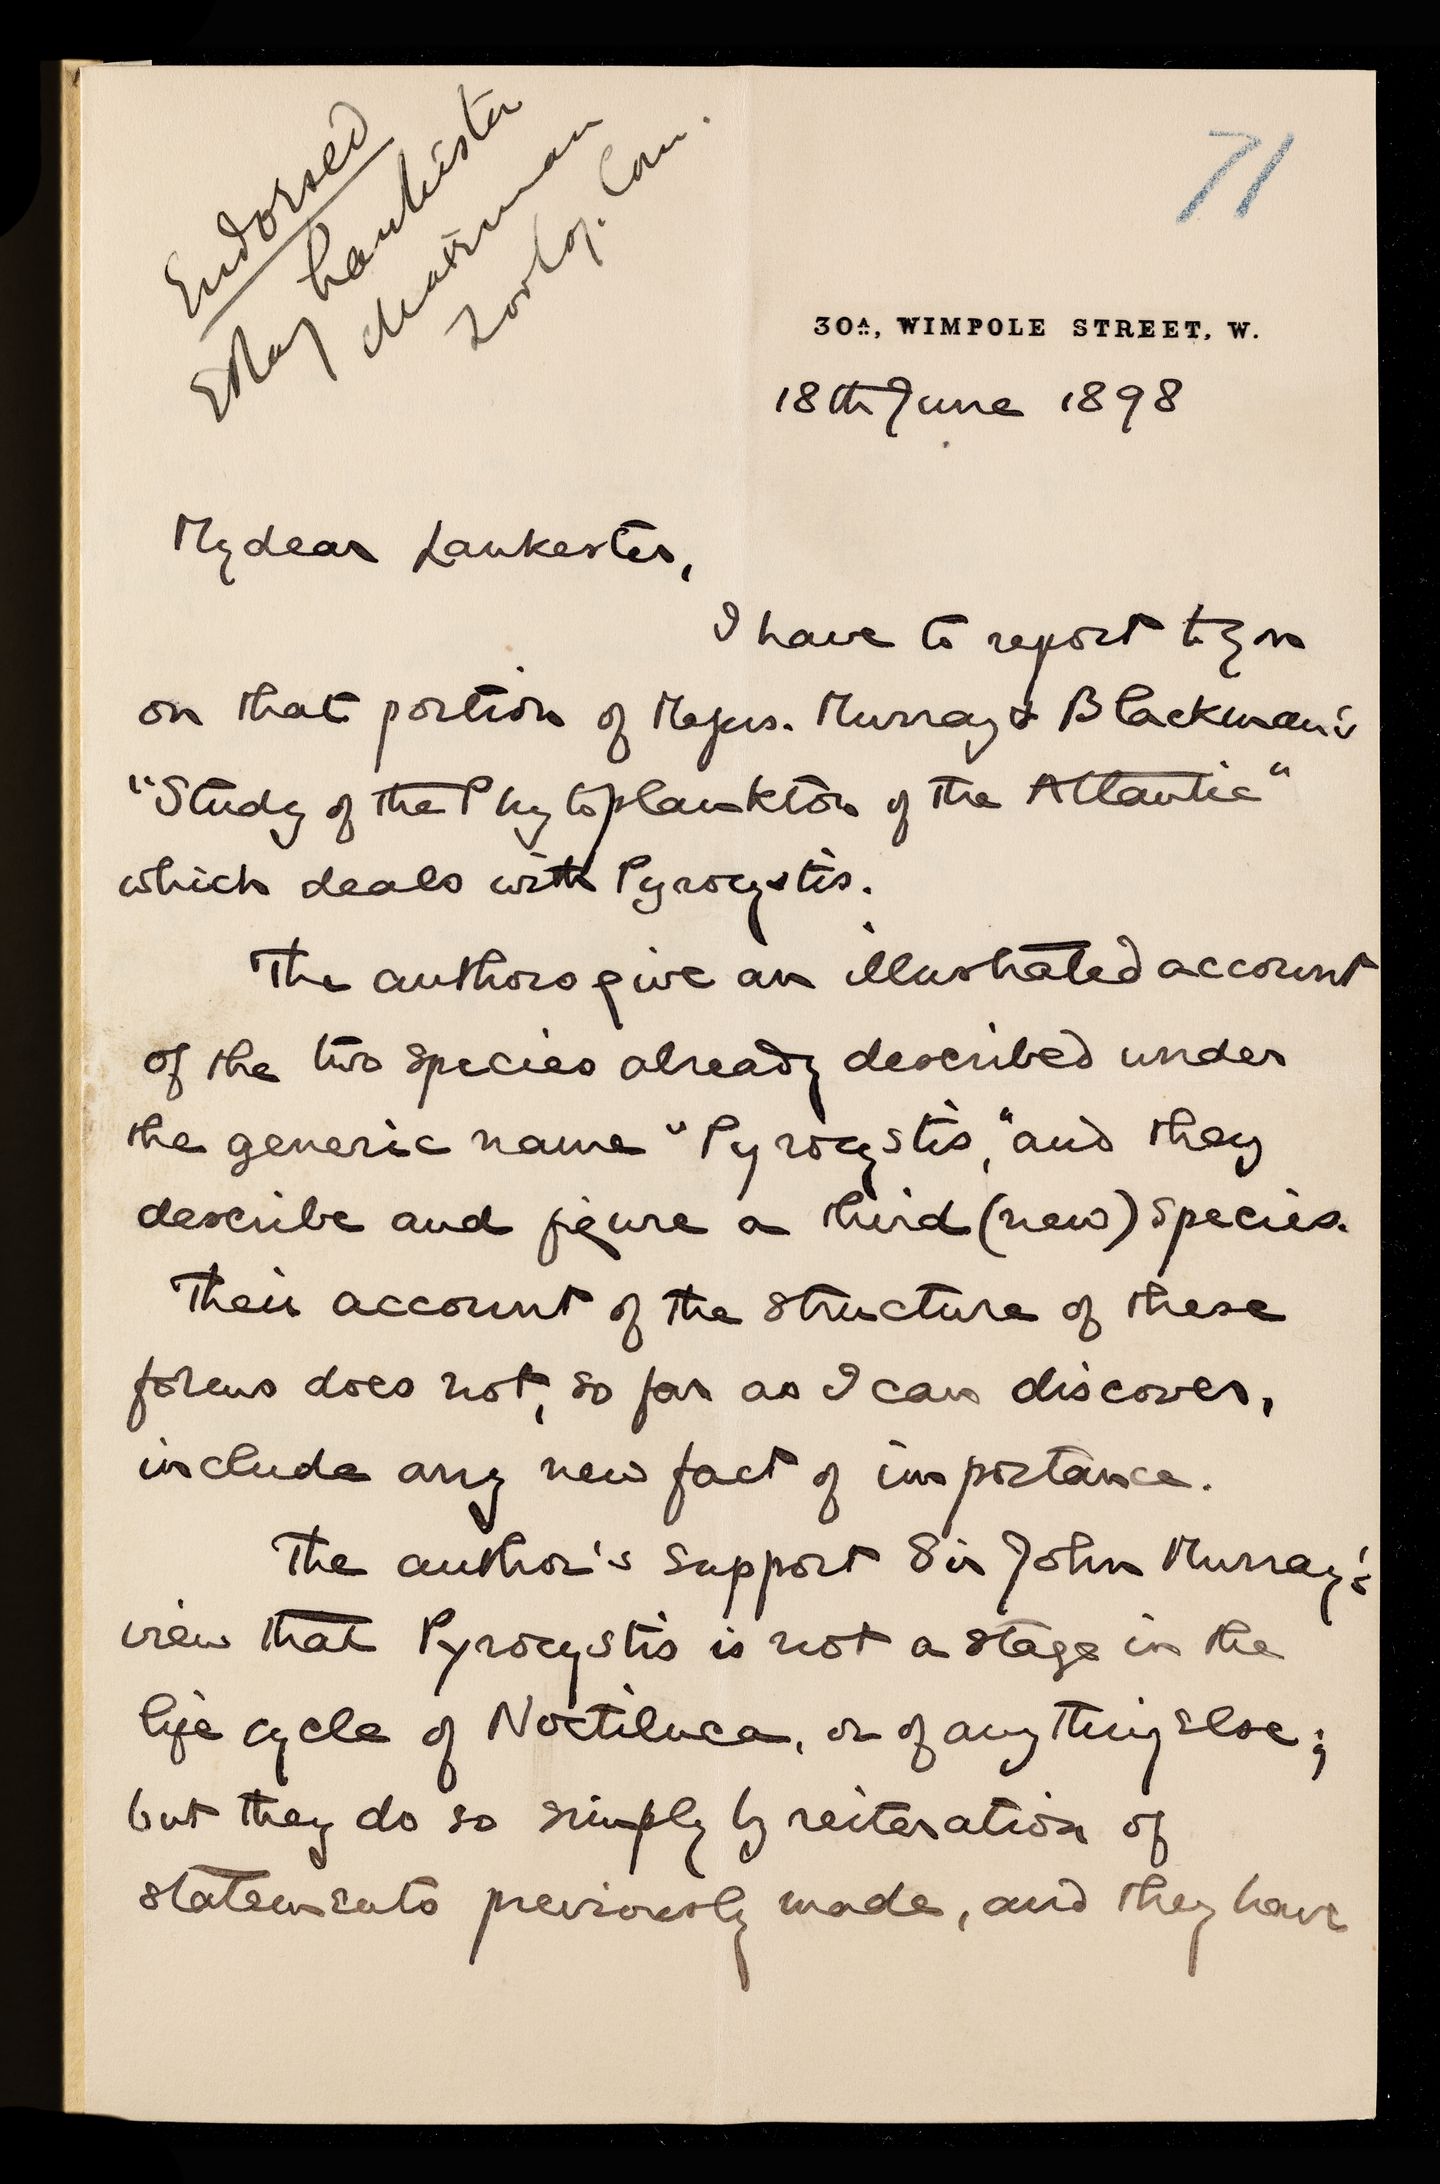 71
Endorsed
E Ray Lankester
chairman
Zoolog. Com.
30A, WIMPOLE STREET, W.
18th June 1898
My dear Lankester,
I have to report to you
on that portion of Messrs. Murray & Blackman's
"Study of the Phytoplankton of the Atlantic"
which deals with Pyrocystis.
The authors give an illustrated account
of the two species already described under
the generic name "Pyrocystis," and they
describe and figure a third (new) species.
Their account of the structure of these
forms does not, so far as I can discover,
include any new fact of importance.
The author's support Sir John Murray's
view that Pyrocystis is not a stage in the
life cycle of Noctiluca, or of anything else;
but they do so simply by reiteration of
statements previously made, and they have